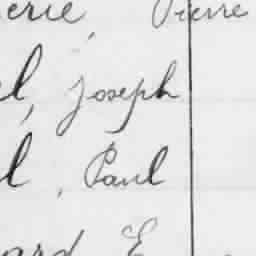 erie, Pierre
l, Joseph
l, Paul
ard, E